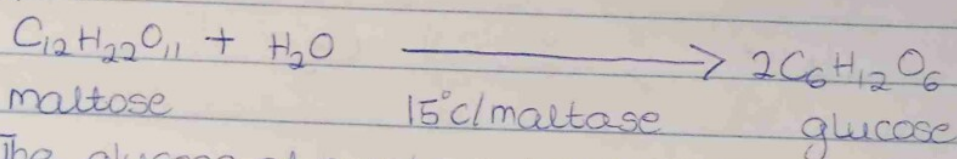 C₁₂H₂₂O₁₁ + H₂O ⟶ 2C₆H₁₂O₆
maltose 15°c/maltase glucose
The glucose